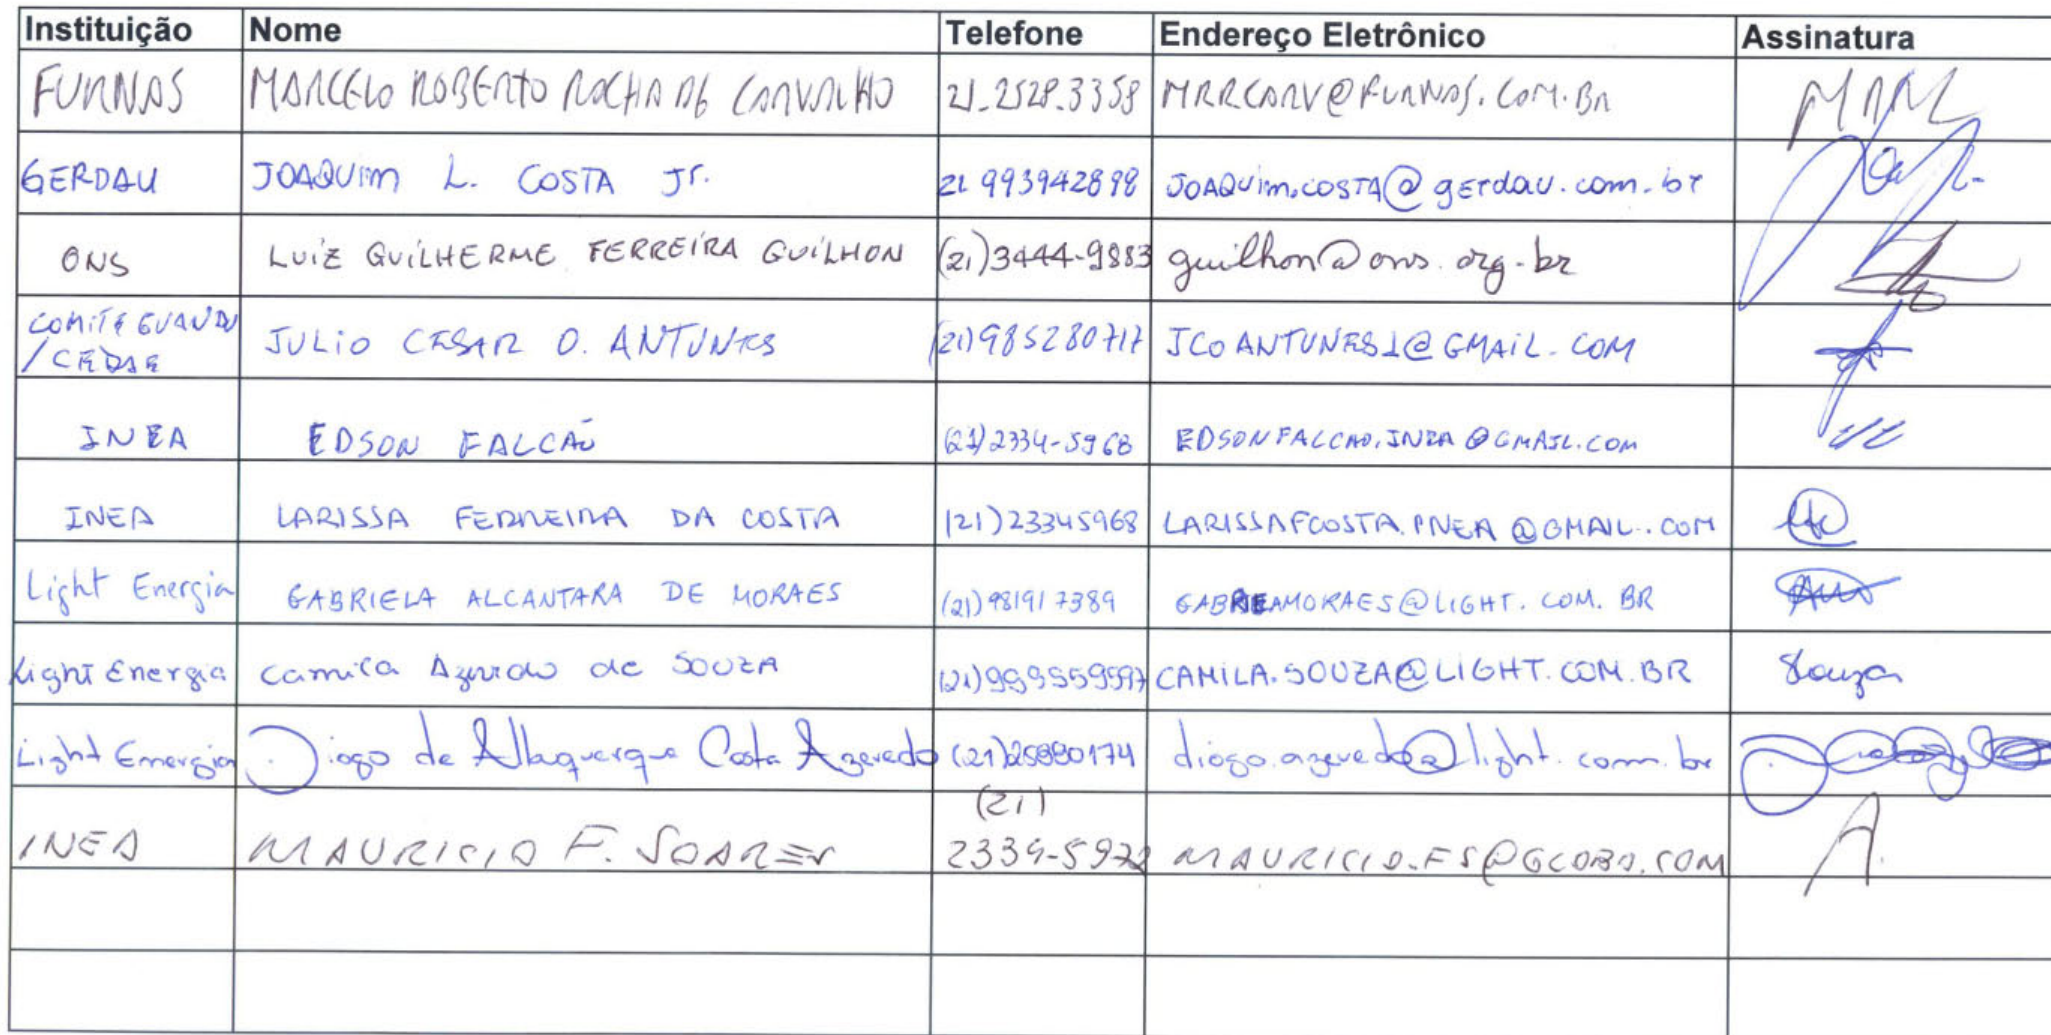 Instituição Nome Telefone Endereço Eletrônico Assinatura
FURNAS MARCELO ROBERTO ROCHA DE CARVALHO 21-2528-3358 MRRCARV@FURNAS.COM.BR
GERDAU JOAQUIM L. COSTA Jr. 21 993942898 JOAQUIM.COSTA@gerdau.com.br
ONS LUIZ GUILHERME FERREIRA GUILHON (21)3444-9883 guilhon@ons.org.br
COMITÊ GUANDU
/CEDAE JULIO CESAR O. ANTUNES (21)985280717 JCOANTUNES1@GMAIL.COM
INEA EDSON FALCÃO (21)2334-5968 EDSONFALCAO.INEA@GMAIL.COM
INEA LARISSA FERREIRA DA COSTA (21)23345968 LARISSAFCOSTA.INEA@GMAIL.COM
Light Energia GABRIELA ALCANTARA DE MORAES (21)981917389 @LIGHT.COM.BR
Light Energia Camila Azevedo de SOUZA (21)999559597 CAMILA.SOUZA@LIGHT.COM.BR Souza
Light Energia Diogo de Albuquerque Costa Azevedo diogo.azevedo@light.com.br
(21)
INEA MAURICIO F. SOARES MAURICIO.FS@GLOBO.COM